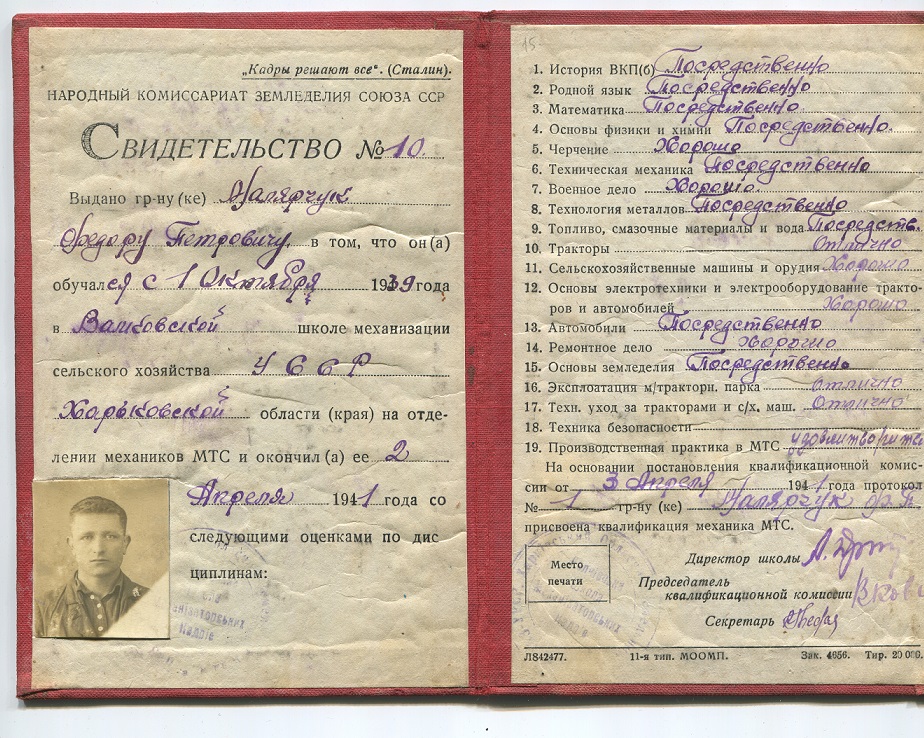 „Кадры решают все“. (Сталин).
НАРОДНЫЙ КОМИССАРИАТ ЗЕМЛЕДЕЛИЯ СОЮЗА ССР
СВИДЕТЕЛЬСТВО № 10
Выдано гр-ну (ке) Малярчук
Федору Петровичу в том, что он(а)
обучался с 1 Октября 1939 года
в Валковской школе механизации
сельского хозяйства УССР
Харьковской области (края) на отде-
лении механиков МТС и окончил (а) ее 2
Апреля 1941 года со
следующими оценками по дис
циплинам:
15
1. История ВКП(б) Посредственно
2. Родной язык Посредственно
3. Математика Посредственно
4. Основы физики и химии Посредственно.
5. Черчение Хорошо
6. Техническая механика Посредственно
7. Военное дело Хорошо.
8. Технология металлов Посредственно
9. Топливо, смазочные материалы и вода Посредств.
10. Тракторы Отлично
11. Сельскохозяйственные машины и орудия Хорошо
12. Основы электротехники и электрооборудование тракто-
ров и автомобилей Хорошо
13. Автомобили Посредственно
14. Ремонтное дело Хорошо
15. Основы земледелия Посредственно
16. Эксплоатация м/тракторн. парка Отлично
17. Техн. уход за тракторами и с/х. маш. Отлично
18. Техника безопасности
19. Производственная практика в МТС
На основании постановления квалификационной комис-
сии от 3 Апреля 1941 года протокол
№ 1 гр-ну (ке) Малярчук
присвоена квалификация механика МТС.
Место
печати
Директор школы
Председатель
квалификационной комиссии
Секретарь
Л842477. 11-я тип. МООМП. Зак. 4956. Тир. 20 000.